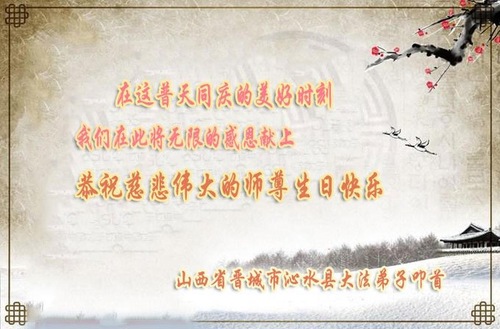 在这普天同庆的美好时刻
我们在此将无限的感恩献上
恭祝慈悲伟大的师尊生日快乐
山西省晋城市沁水县大法弟子叩首